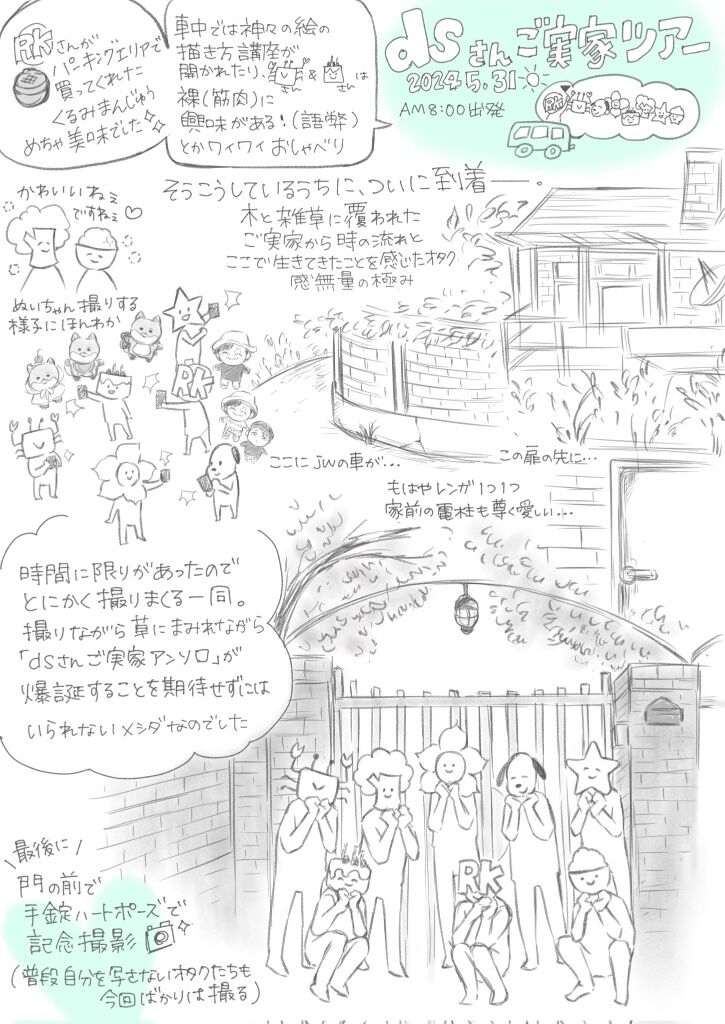 dsさんご実家ツアー
2024.5.31
AM8:00出発
RK
車中では神々の絵の
描き方講座が
開かれたり、さん&さんは
裸(筋肉)に
興味がある!(語弊)
とかワイワイおしゃべり
RKさんが
パーキングエリアで
買ってくれた
くるみまんじゅう
めちゃ美味でした
そうこうしているうちに、ついに到着――。
木と雑草に覆われた
ご実家から時の流れと
ここで生きてきたことを感じたオタク
感無量の極み
かわいいねぇ
ですねぇ♡
ぬいちゃん撮りする
様子にほんわか
RK
ここにjwの車が…
この扉の先に…
もはやレンガ1つ1つ
家前の電柱も尊く愛しい…
時間に限りがあったので
とにかく撮りまくる一同。
撮りながら草にまみれながら
「dsさんご実家アンソロ」が
爆誕することを期待せずには
いられないメシダなのでした
RK
\最後に/
門の前で
手錠ハートポーズで
記念撮影
(普段自分を写さないオタクたちも
今回ばかりは撮る)